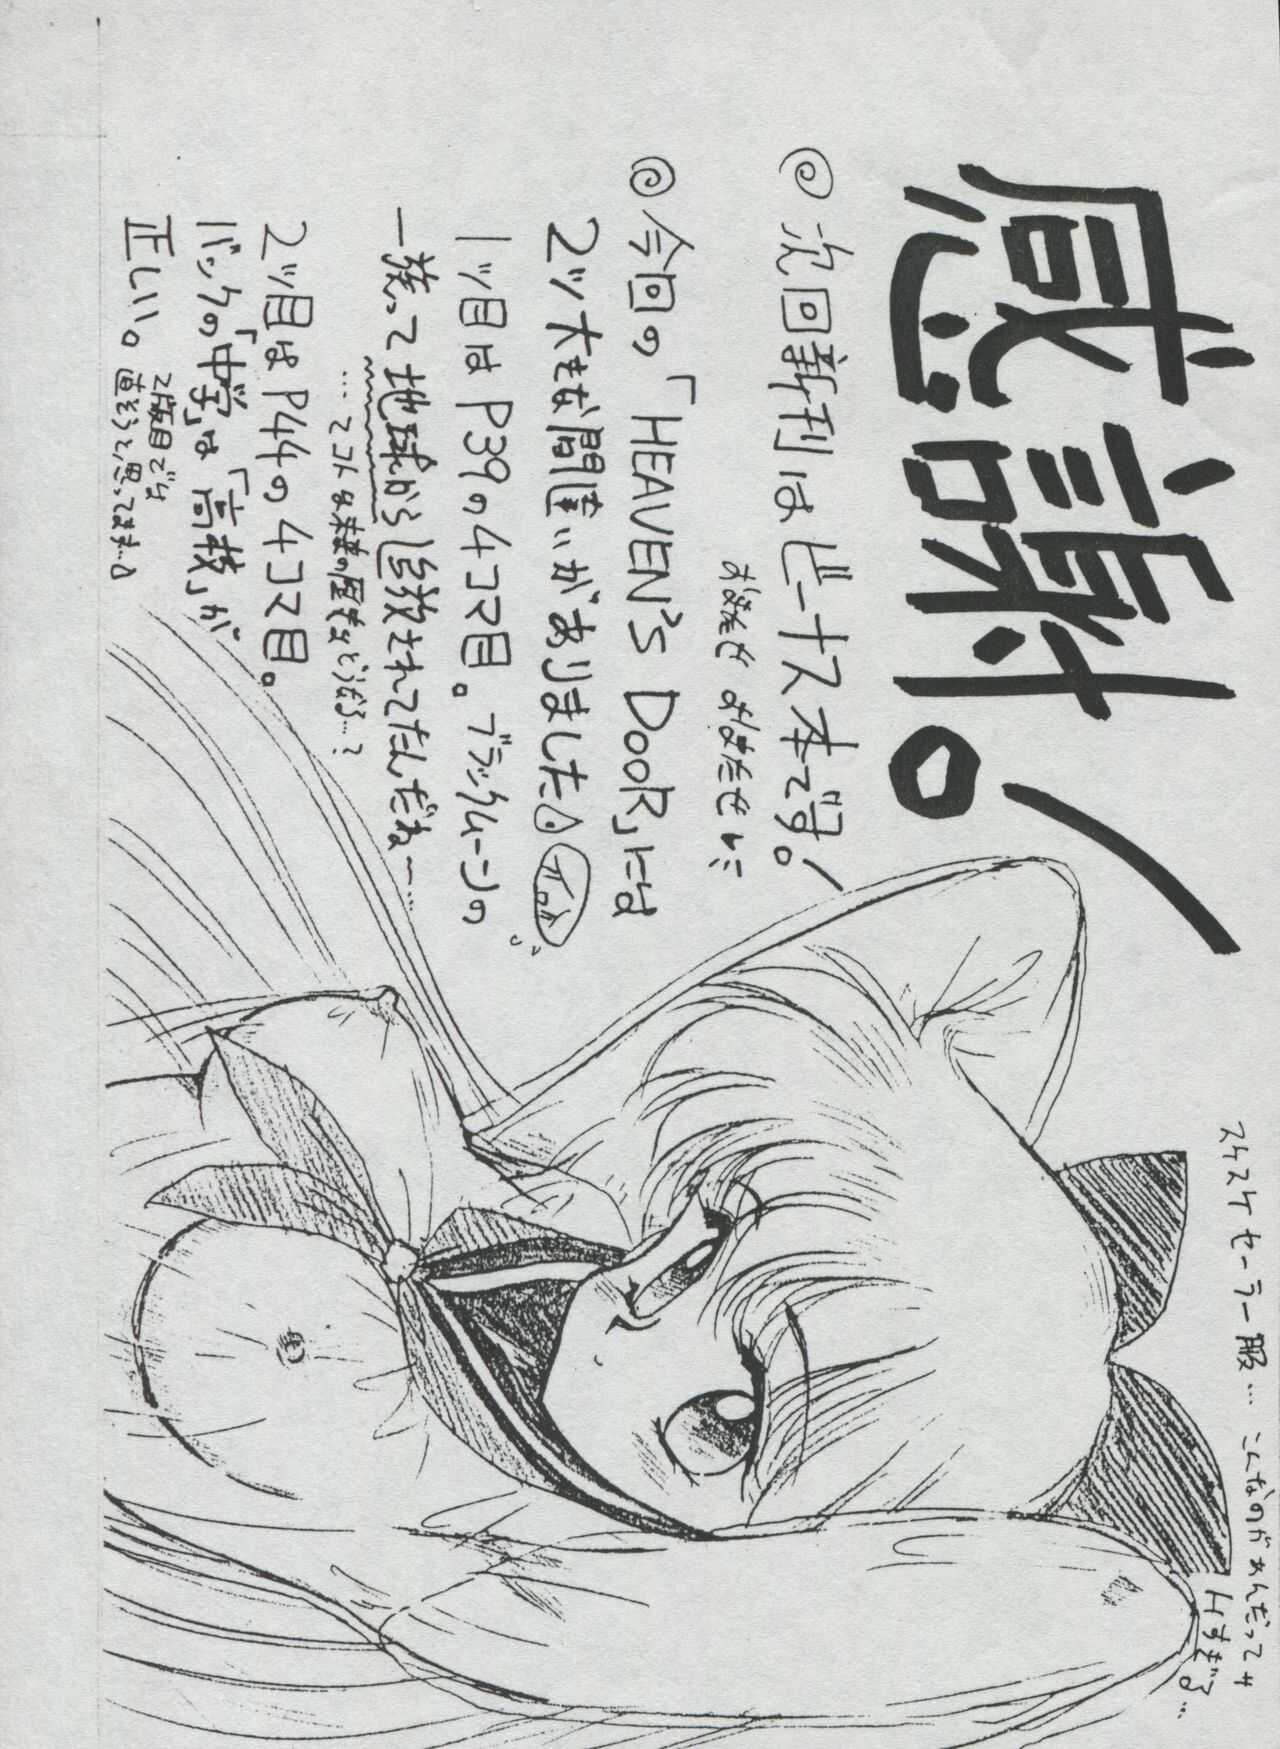 感謝。！
◎次回新刊はビーナス本です！
おまたせ
◎今回の「HEAVEN's DooR」には
2ッ大きな間違いがありました
1ッ目はP39の4コマ目。ブラックムーンの
一族って地球から追放されてたんだねー…
…マコトは未来の歴史はどうなる…？
2ッ目はP44の4コマ目。
バックの「中学」は「高校」が
正しい。
2版目では
直そうと思ってます…
スケスケセーラー服… こんなのがあんだってサ
Hすぎる…